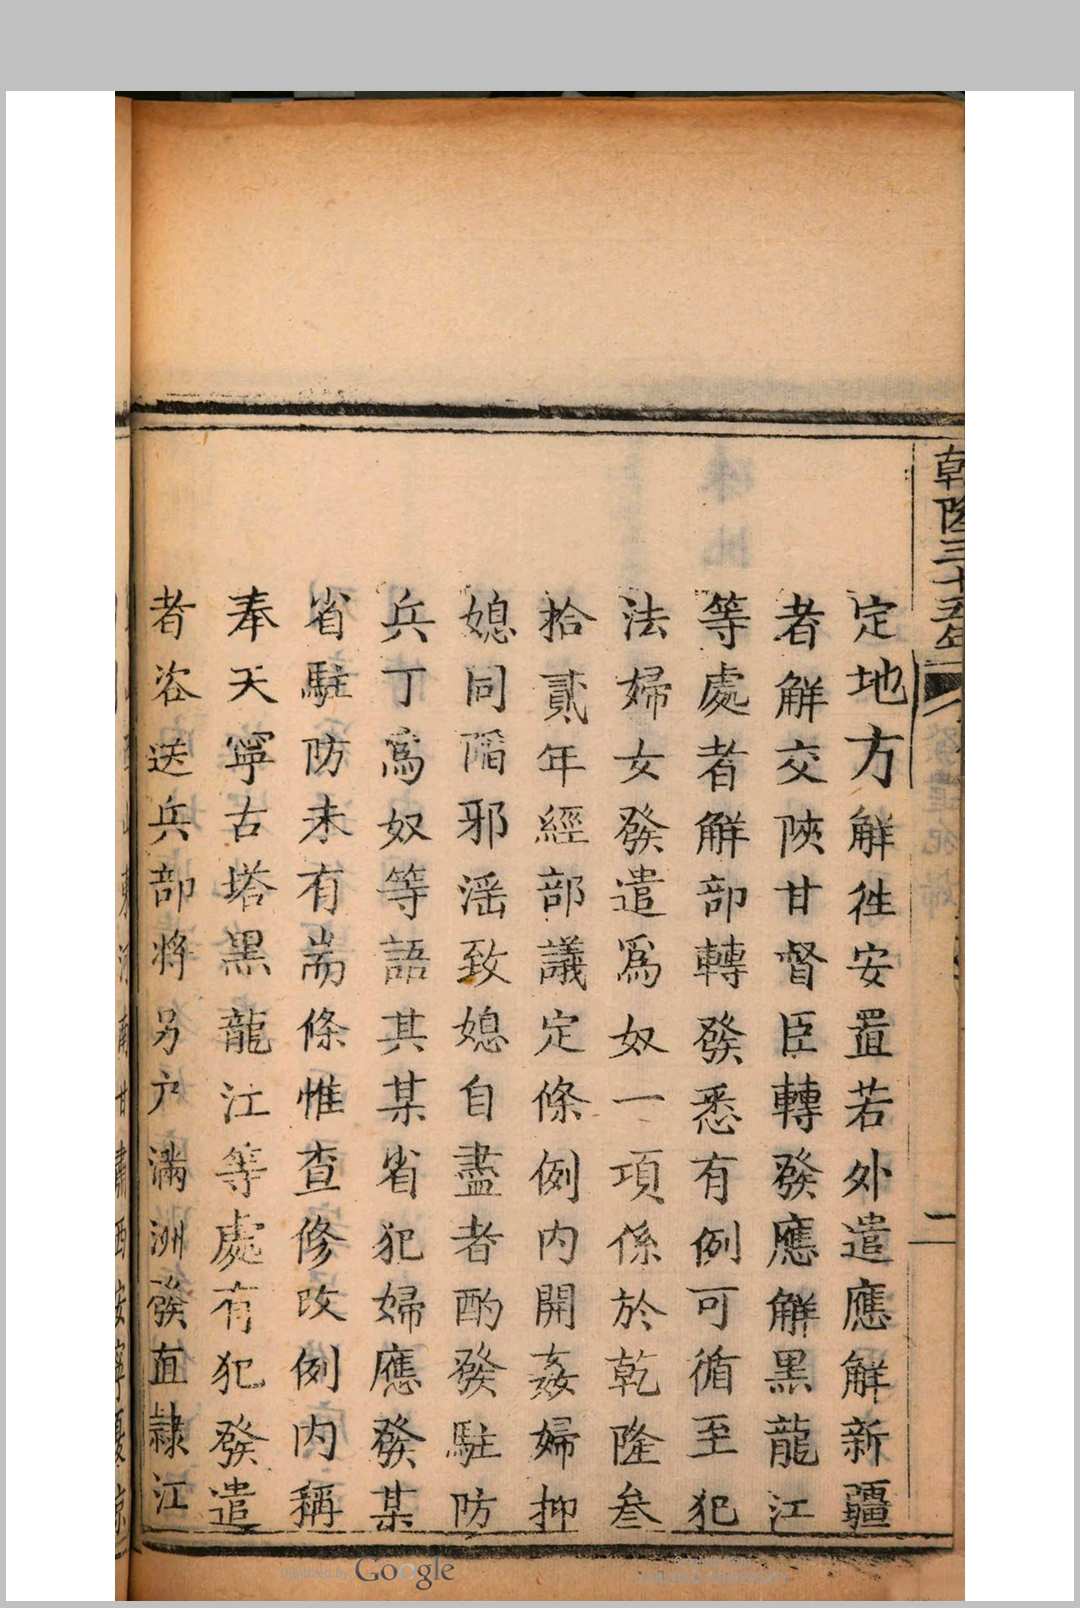 乾隆三十五年
發遣犯婦
二
定地方解徃安置若外遣應解新疆
者解交陝甘督臣轉發應解黑龍江
等處者解部轉發悉有例可循至犯
法婦女發遣爲奴一項係於乾隆叁
拾貳年經部議定條例內開姦婦抑
媳同陷邪滛致媳自盡者酌發駐防
兵丁爲奴等語其某省犯婦應發某
省駐防未有耑條惟查修改例內稱
奉天寧古塔黑龍江等處有犯發遣
者咨送兵部將另户滿洲發直隷江
東河南甘肅西安寧夏凉
Google